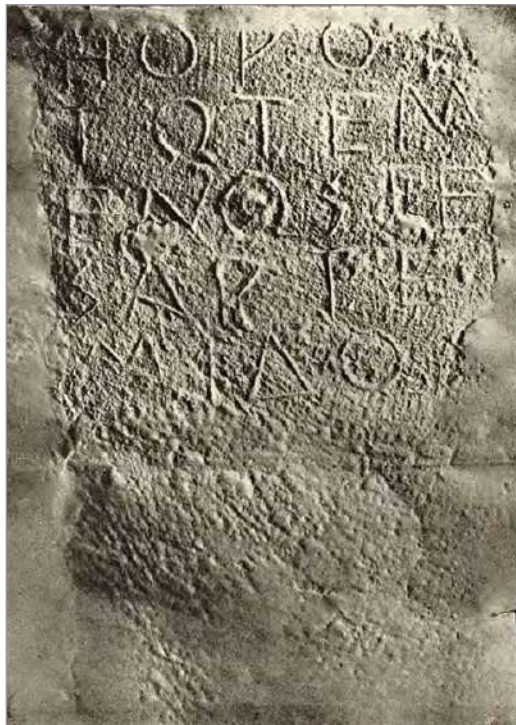 ΗΟΡΟΣ
ΤΩΤΕΜ
ΕΝΟΣΤΕ
ΣΑΡΤΕ
ΜΙΔΟΣ